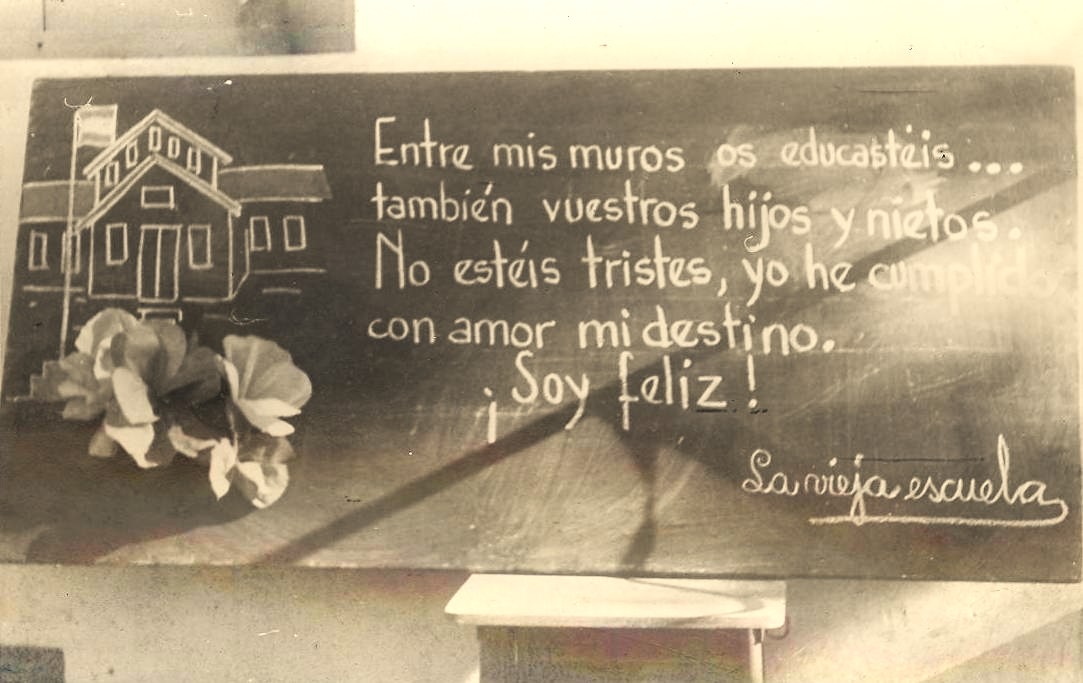 Entre mis muros os educastéis...
también vuestros hijos y nietos.
No estéis tristes, yo he cumplido
con amor mi destino.
¡Soy feliz!
La vieja escuela